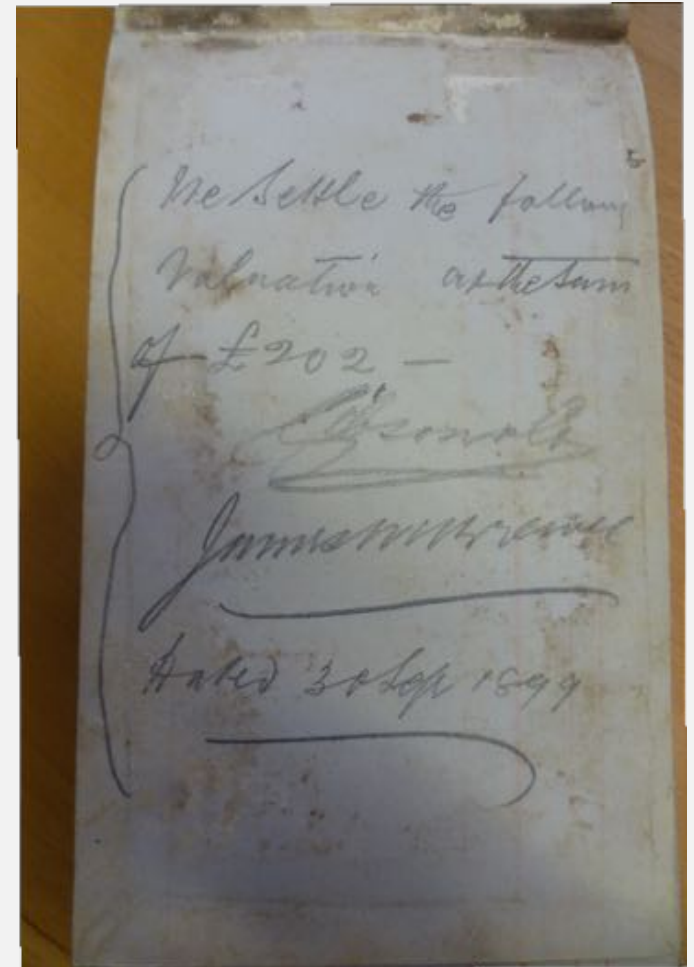 We Settle the follow
Valuation at the Sum
of £202 —
James
Dated 30 Sep 1899